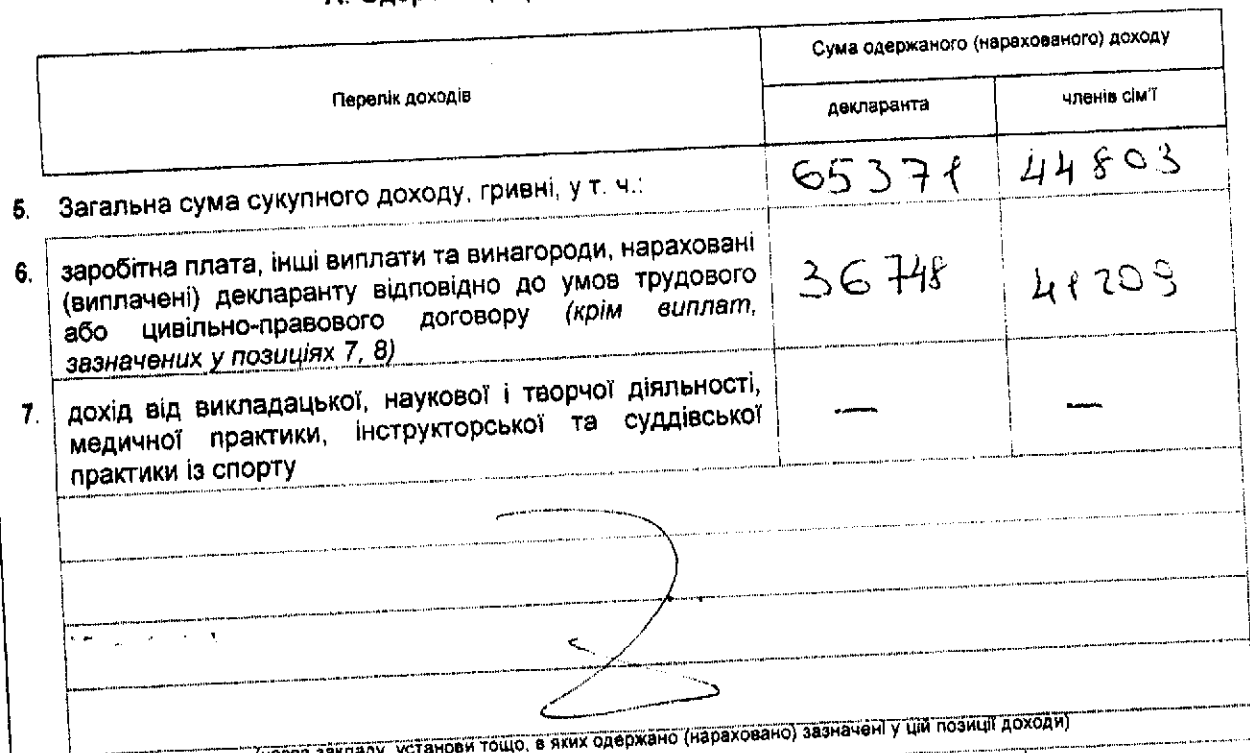 Перелік доходів
Сума одержаного (нарахованого) доходу
декларанта
членів сім'ї
5. Загальна сума сукупного доходу, гривні, у т. ч.:
65371
44803
6. заробітна плата, інші виплати та винагороди, нараховані
(виплачені) декларанту відповідно до умов трудового
або цивільно-правового договору (крім виплат,
зазначених у позиціях 7, 8)
36748
41209
7. дохід від викладацької, наукової і творчої діяльності,
медичної практики, інструкторської та суддівської
практики із спорту
—
—
закладу, установи тощо, в яких одержано (нараховано) зазначені у цій позиції доходи)